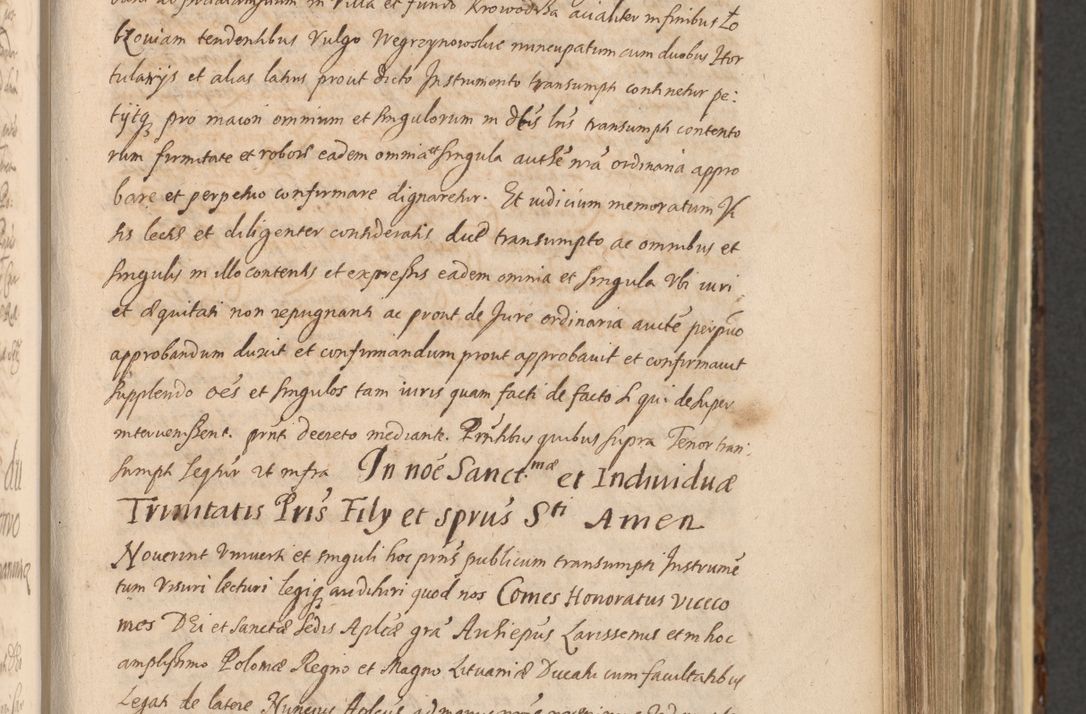 in Villa et fundo Krowodrża aciahter in finibus Ło
bzouiam tendentibus Vulgo Wegrzynowskie nuncupatum cum duobus Hor
tulanijs et alias latius prout dicto Instrumento transumpti continetur pe:
tijtq pro maiori omnium et singulorum in dtis lris transumpti contento
rum firmitate et robore eadem omnia et singula authe nra ordinaria appro
bare et perpetuo confirmare dignaretur. Et iudicium memoratum
his lectis et diligenter consideratis dicto transumpto ac omnibus et
singulis in illo contentis et expressis eadem omnia et singula Vbi iuri
et æquitati non repugnanti ac prout de Jure ordinaria aucte perpuo
approbandum duxit et confirmandum prout approbauit et confirmauit
supplendo oēs et singulos tam iuris quam facti de facto si qui desuper
interuenissent. prnti decreto mediante. Prntibus quibus supra Tenor tran:
sumpti seqtur et infra In noē Sanct.mæ et Indiuiduæ
Trinitatis Pris Filij et sprus Sti Amen
Nouerint Vniuersi et singuli hoc prns publicum transumpti Instrumē
tum Visuri lecturi legiq audituri quod nos Comes Honoratus Vicecо
mes Dei et Sanctæ Sedis Aplicæ gra Archiepus Larissenus et in hoc
amplissimo Poloniæ Regno et Magno Lituaniæ Ducatu cum facultatibus
Legati de latere Nuncius Aplicus